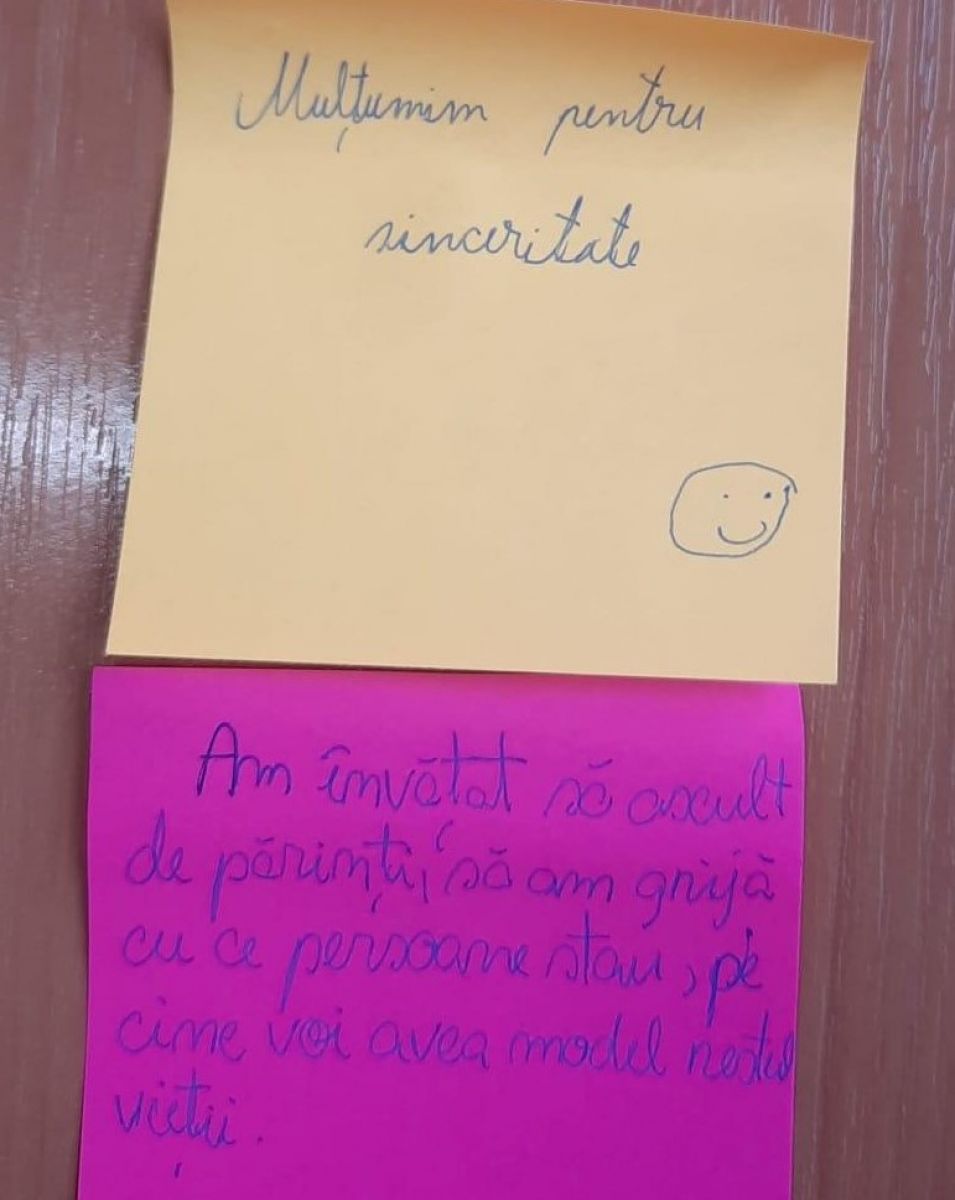 Mulțumim pentru
sinceritate
Am învățat să ascult
de părinți, să am grijă
cu ce persoane stau, pe
cine voi avea model restul
vieții.